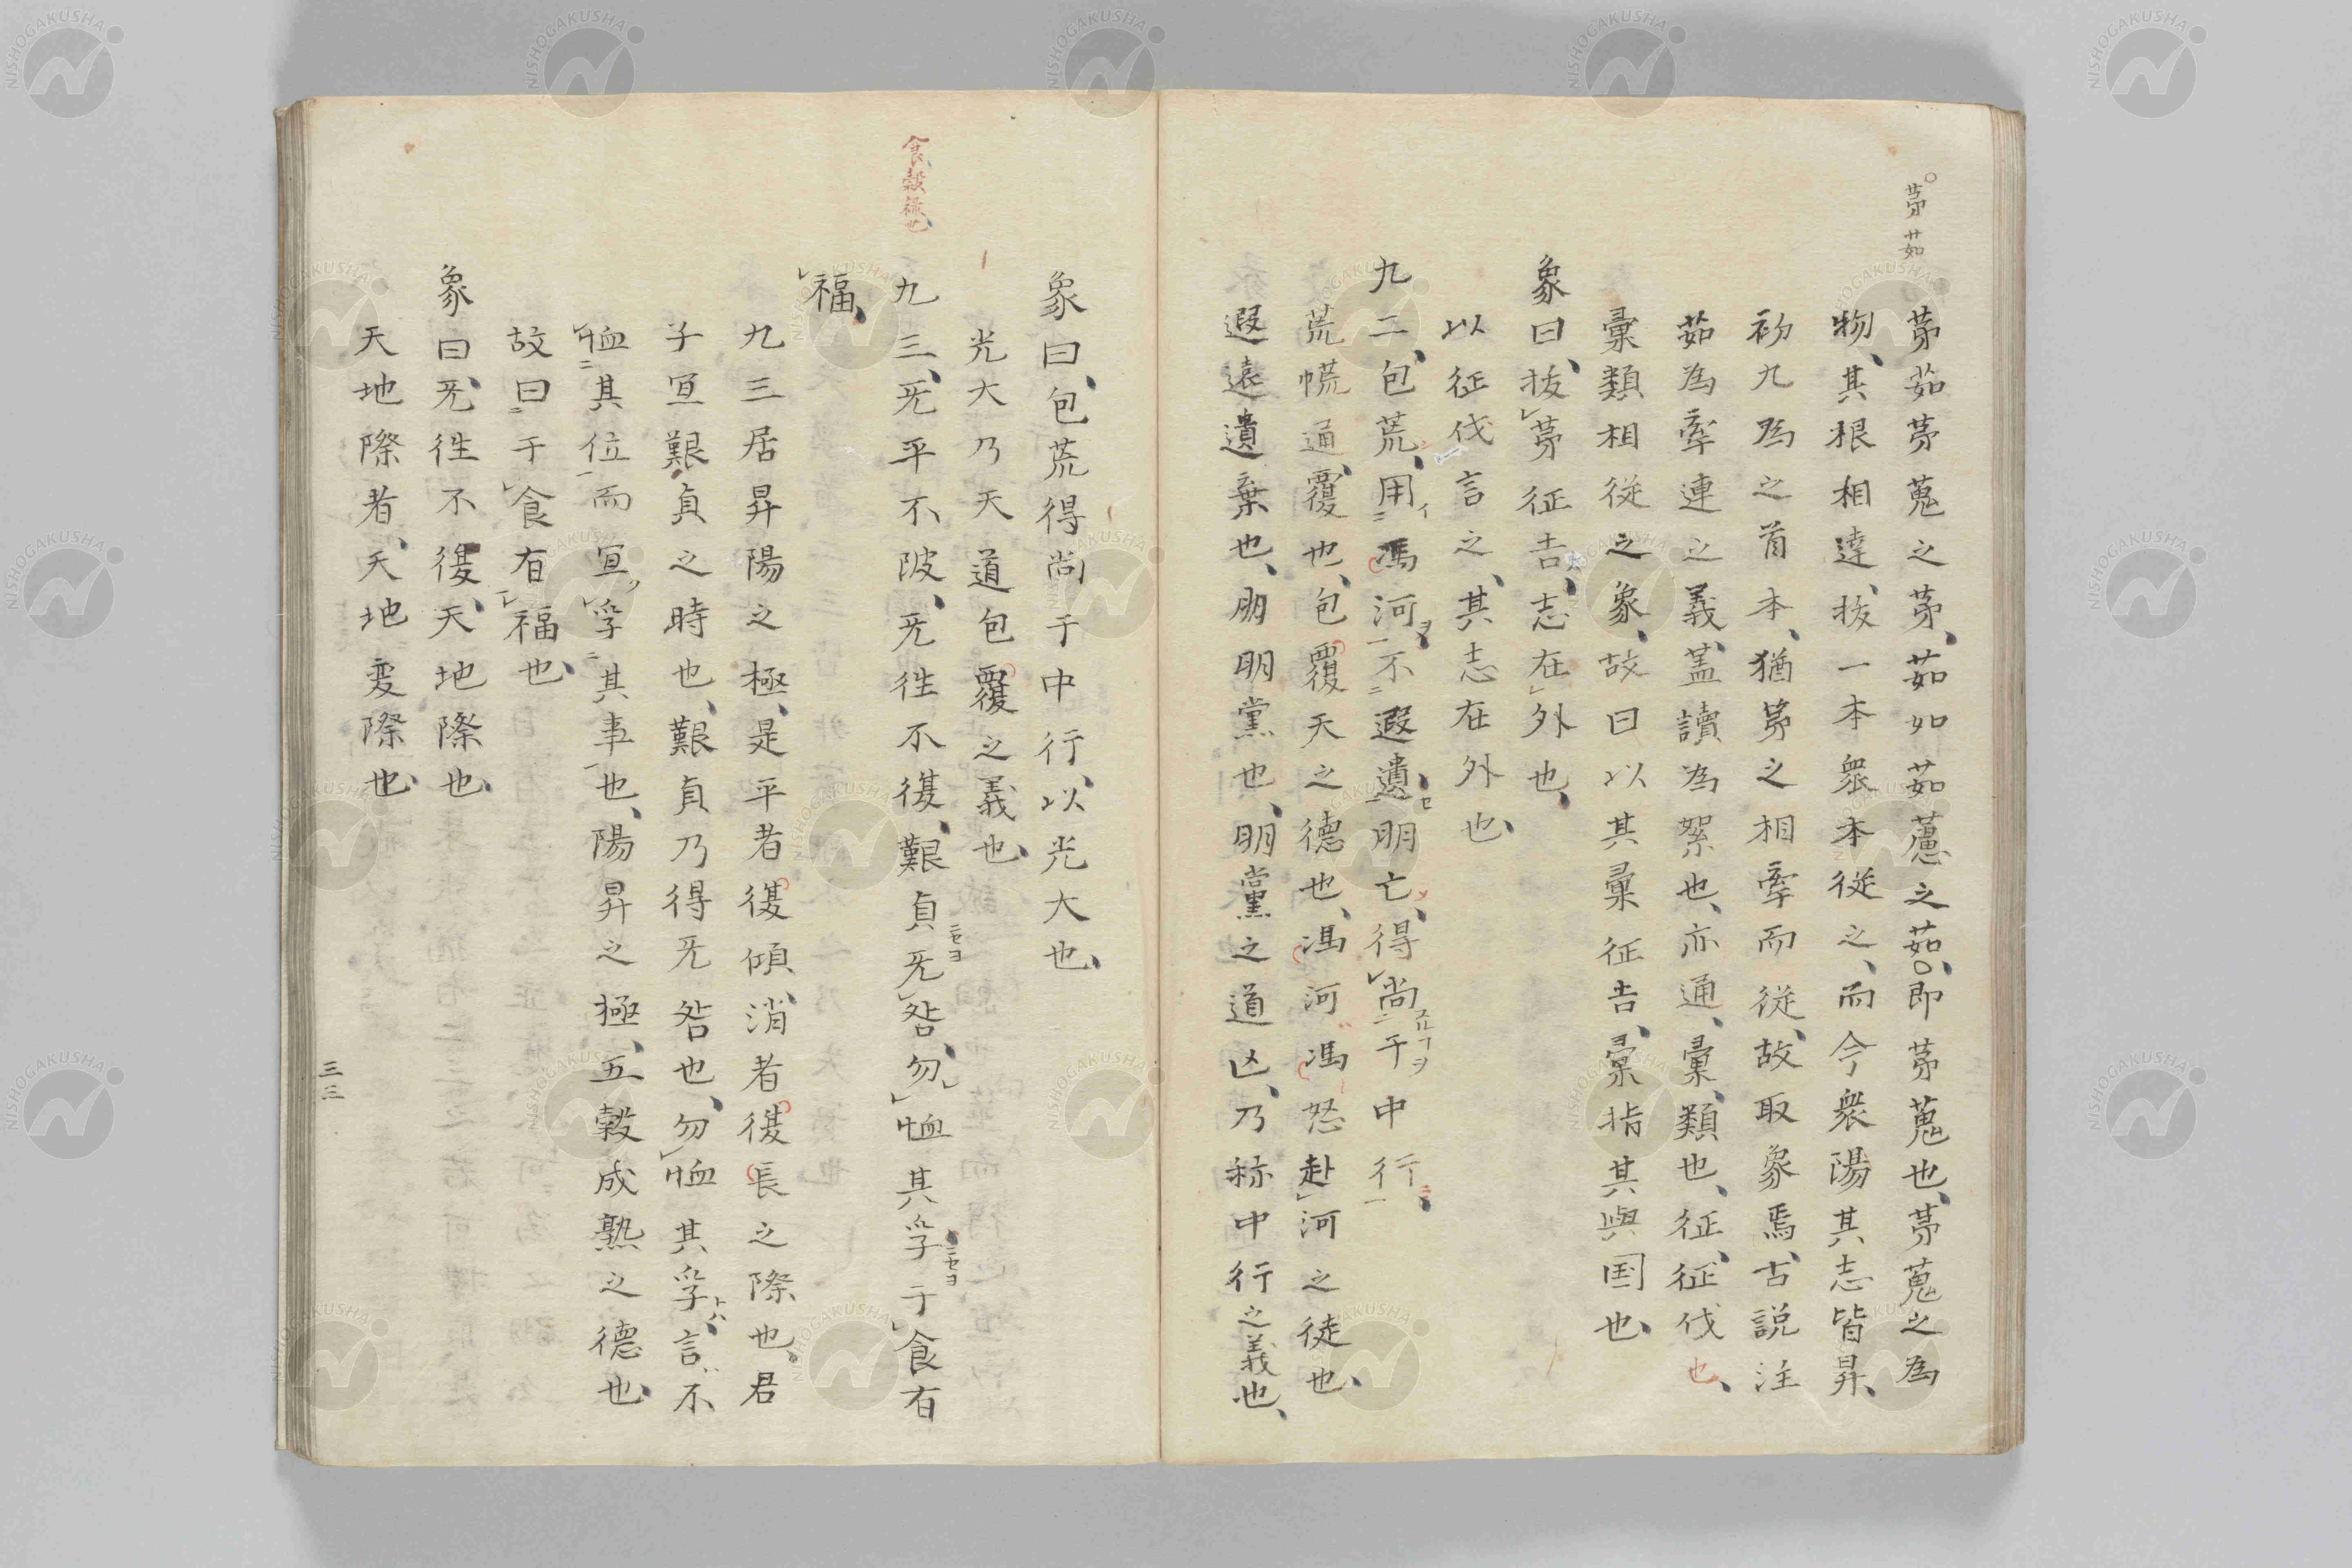 茅茹
茅茹茅蒐之茅、茹如茹藘之茹、即茅蒐也、茅蒐之為
物、其根相達、抜一本衆本従之、而今衆陽其志皆昇、
初九為之首本、猶茅之相牽而従、故取象焉、古説注
茹為牽連之義、蓋讀為絮也、亦通、彙、類也、征、征伐也、
彙類相従之象、故曰以其彙征吉、彙指其與国也、
象曰、抜茅征吉、志在外也、
以征伐言之、其志在外也、
九二、包荒、用馮河、不遐遺、朋亡、得尚于中行、
荒㡆通、覆也、包覆天之德也、馮河馮怒赴河之徒也、
遐遠遺棄也、朋明黨也、朋黨之道凶、乃称中行之義也、
象曰、包荒得尚于中行、以光大也、
光大乃天道包覆之義也、
食穀禄也
九三、无平不陂、无往不復、艱貞无咎、勿恤其孚、于食有
福、
九三居昇陽之極、是平者復傾、消者復長之際也、君
子宜艱貞之時也、艱貞乃得无咎也、勿恤其孚、言不
恤其位而宜孚其事也、陽昇之極、五穀成熟之德也、
故曰于食有福也、
象曰、无往不復、天地際也、
天地際者、天地変際也、
三三
NISHOGAKUSHA